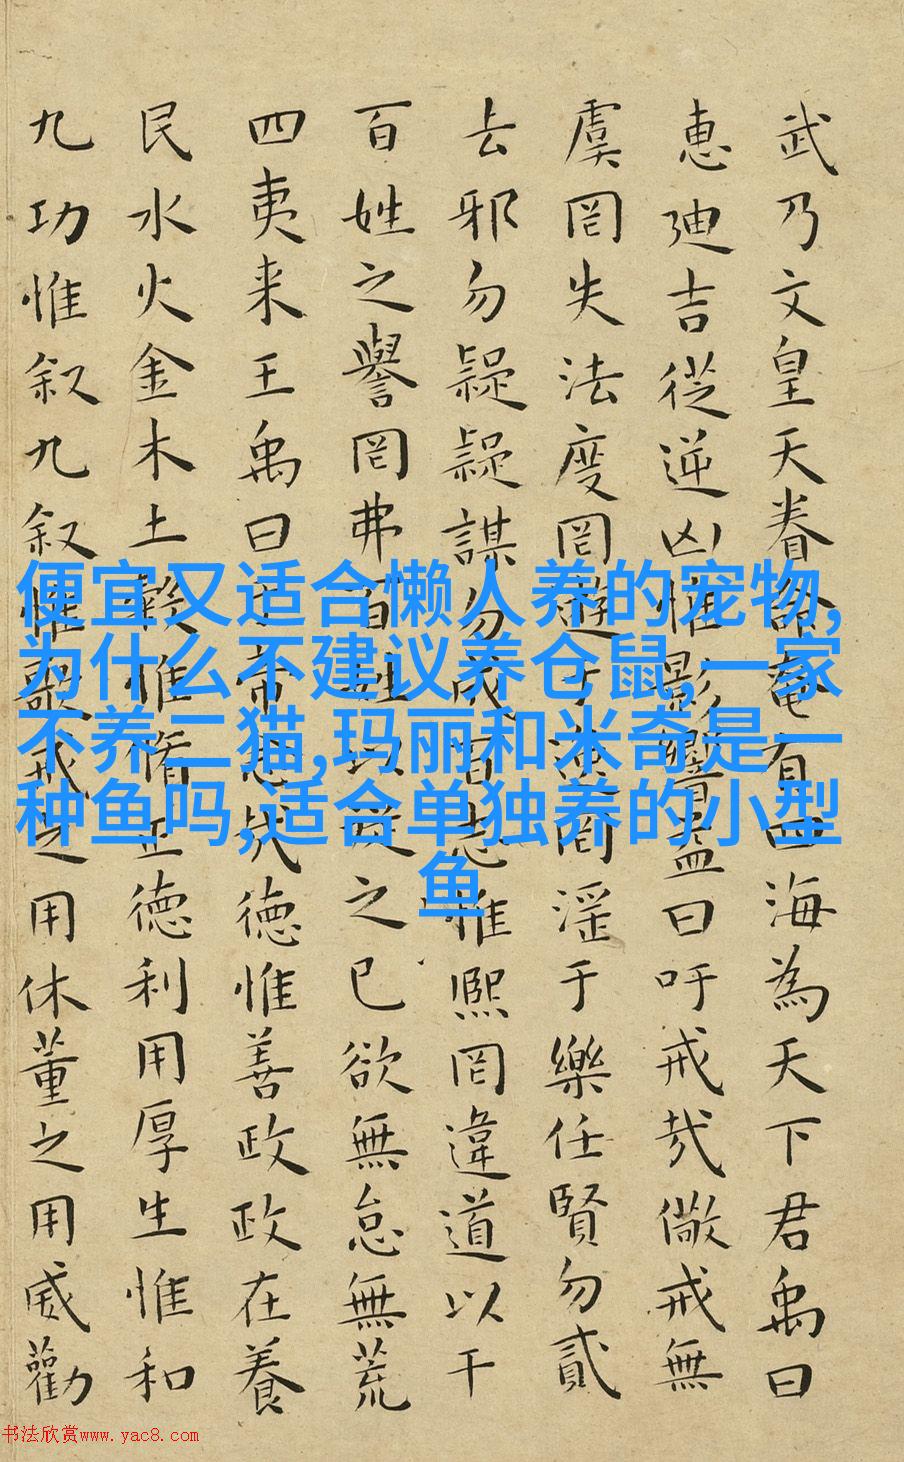 武乃文皇天眷命奄有四海為天下君禹曰
惠迪吉從逆凶惟影響益曰吁戒哉儆戒無
虞罔失法度罔遊于逸罔淫于樂任賢勿貳
去邪勿疑疑謀勿成百志惟熙罔違道以干
百姓之譽罔弗百姓以從之已欲無怠無荒
四夷来王禹曰於帝念哉德惟善政政在養
民水火金木土穀惟脩正德利用厚生惟和
九功惟叙九叙惟歌戒之用休董之用威勸
便宜又适合懒人养的宠物,
为什么不建议养仓鼠,一家
不养二猫,玛丽和米奇是一
种鱼吗,适合单独养的小型
鱼
书法欣赏www.yac8.com